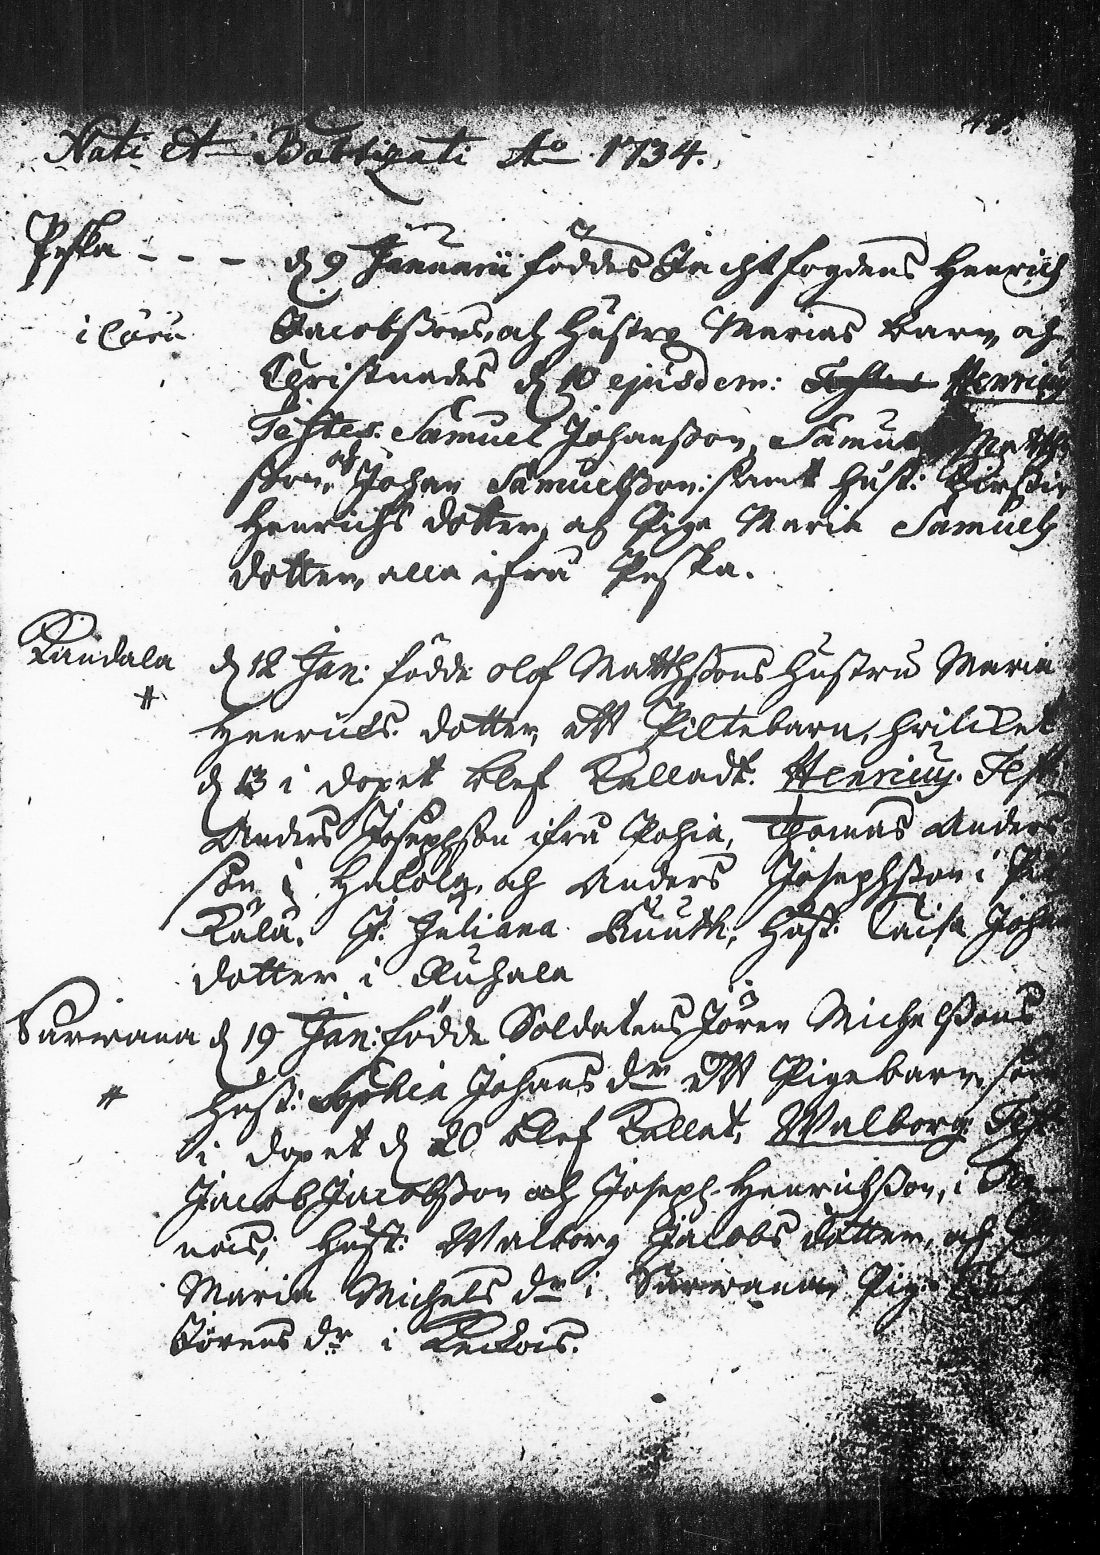 Nati et Baptizati Ao 1734.
Peska - - - d 9 Januarii föddes Jachtfogdens Henrich
i Cöru Jacobssons, och Hustru Marias barn, och
Christnades d 10 ejusdem: Henricus
Testes. Samuel Johansson, Samuel Matth
sson, och Johan Samuelsson: samt Hust:
Henrichs dotter, och Piga Maria Samuels
dotter, alla ifrå Peska.
Kandala d 12 Jan: födde Olof Matthssons Hustru Maria
Henrichs dotter, ett Piltebarn, hvilcket
d 13 i dopet blef Kalladt. Henricus. Test
Anders Josephson ifrå Pohia, Thomas Anders
son i och Anders Josephsson i
Kala. Juliana Hust: Caisa Joha
dotter i
Sarwana d 19 Jan: födde Soldatens Jören Michelssons
Hust: Sophia Johans dr ett Pigebarn, som
i dopet d 20 blef Kallat, Walborg Test
Jacob Jacobsson och Joseph Henrichsson, i
nois; Hust: Walborg Jacobs dotter, och
Maria Michels dr i Sarwana, Piga
Jörens dr i Keckois.